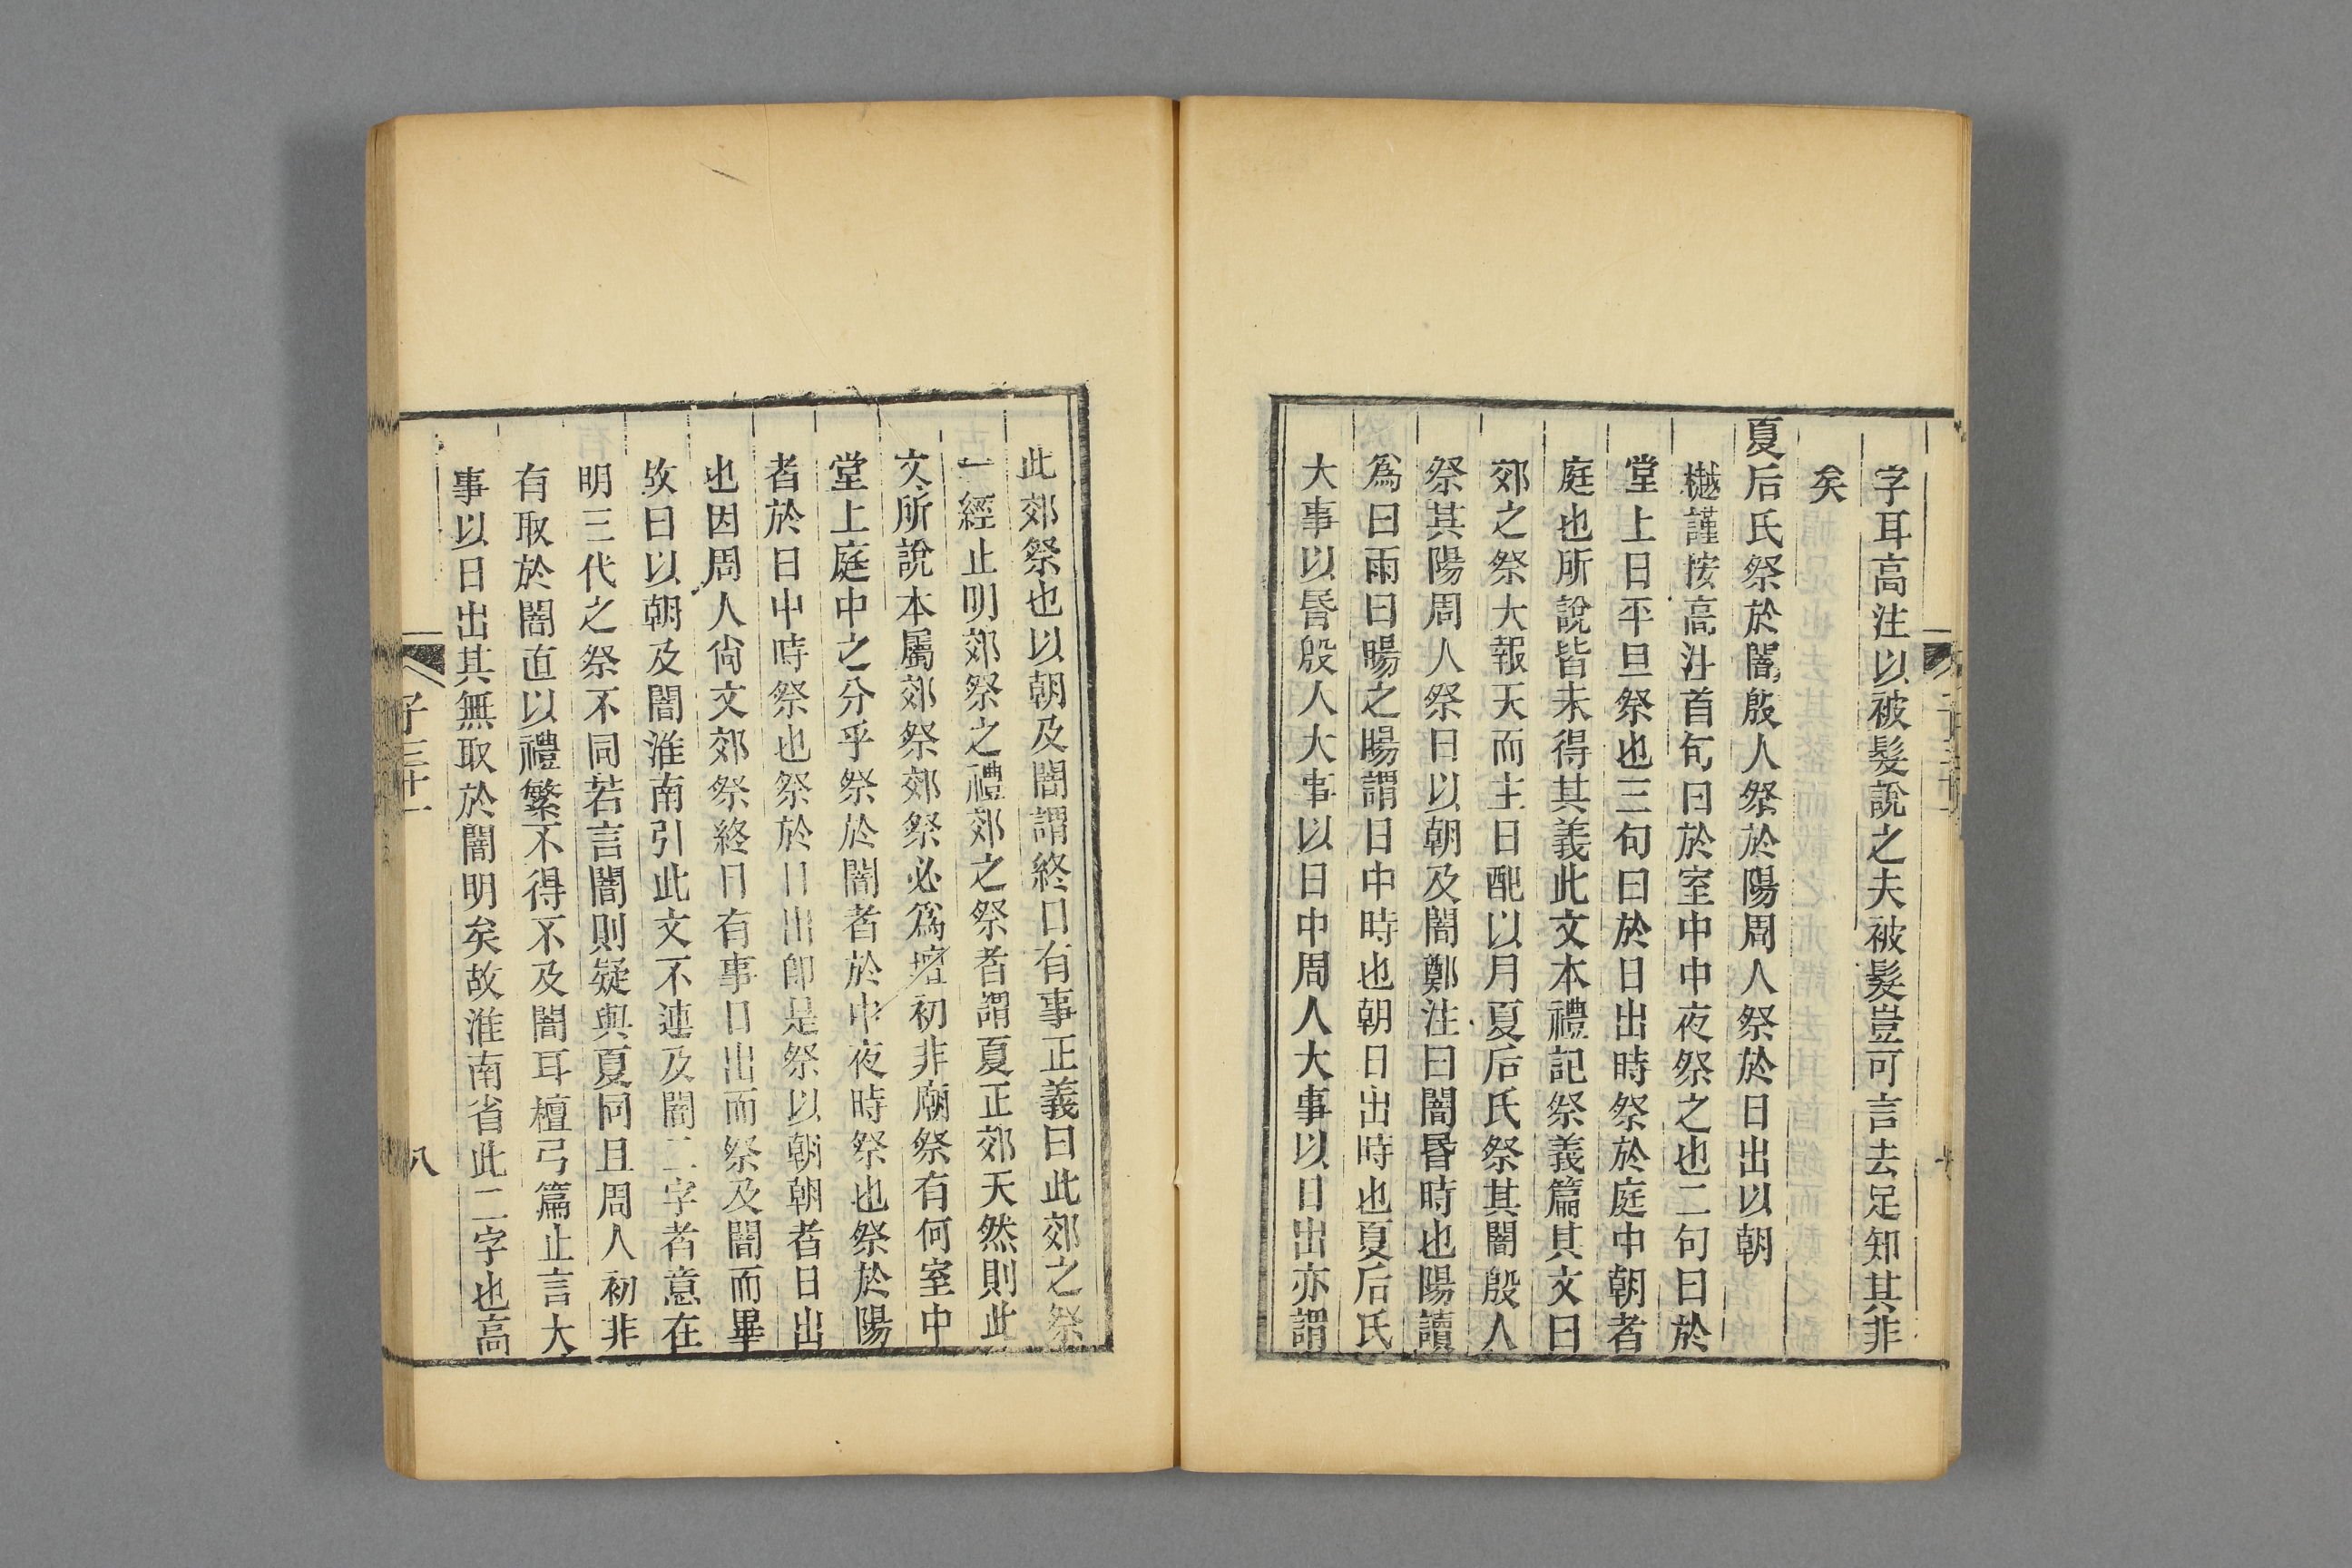 字耳高注以被髮說之夫被髮豈可言去足知其非
矣
夏后氏祭於闇殷人祭於陽周人祭於日出以朝
樾謹按高注首句曰於室中中夜祭之也二句曰於
堂上日平旦祭也三句曰於日出時祭於庭中朝者
庭也所說皆未得其義此文本禮記祭義篇其文曰
郊之祭大報天而主日配以月夏后氏祭其闇殷人
祭其陽周人祭日以朝及闇鄭注曰闇昬時也陽讀
爲曰雨曰暘之暘謂日中時也朝日出時也夏后氏
大事以昬殷人大事以日中周人大事以日出亦謂
此郊祭也以朝及闇謂終日有事正義曰此郊之祭
一經止明郊祭之禮郊之祭者謂夏正郊天然則此
文所說本屬郊祭郊祭必爲壇初非廟祭有何室中
堂上庭中之分乎祭於闇者於中夜時祭也祭於陽
者於日中時祭也祭於日出卽是祭以朝朝者日出
也因周人尙文郊祭終日有事日出而祭及闇而畢
故曰以朝及闇淮南引此文不連及闇二字者意在
明三代之祭不同若言闇則疑與夏同且周人初非
有取於闇直以禮繁不得不及闇耳檀弓篇止言大
事以日出其無取於闇明矣故淮南省此二字也高
子三十一
八